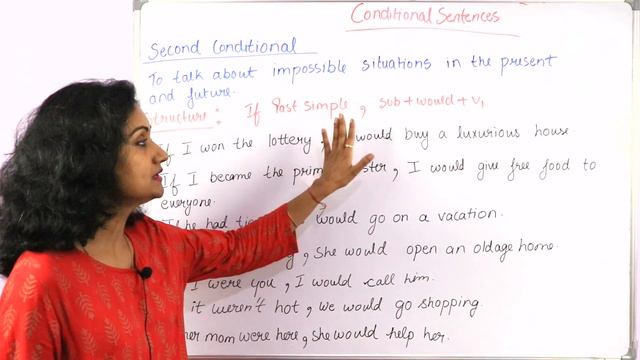 Conditional Sentences
Second Conditional
To talk about impossible situations in the present
and future.
structure: If Past simple, sub + would + V1
If I won the lottery, would buy a luxurious house
If I became the prim ster, I would give free food to
everyone.
If he had ti would go on a vacation.
g, she would open an oldage home.
I were you, I would call him.
it weren't hot, we would go shopping.
her mom were here, she would help her.